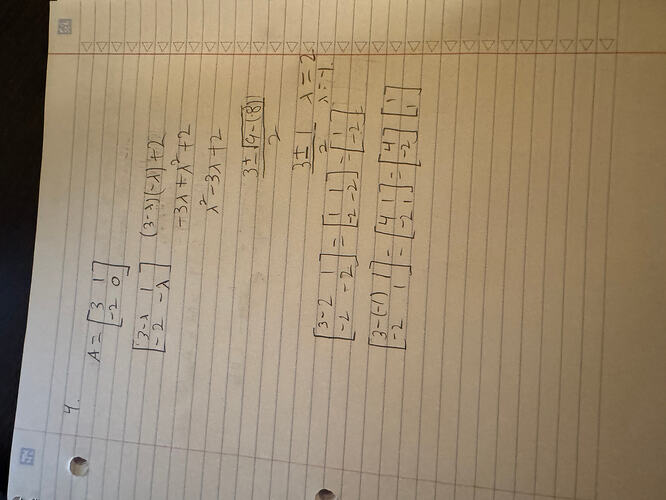 4.
A = [3 1
-2 0]
[3-λ 1
-2 -λ] (3-λ)(-λ)+2
-3λ+λ²+2
λ²-3λ+2
3±√9-(-8)
2
3±1 λ=2
2 λ=-1
[3-2 1
-2 -2] = [1 1
-2 -2] = [1
-2]
[3-(-1) 1
-2 1] = [4 1
-2 1] = [4
-2] [1
1]